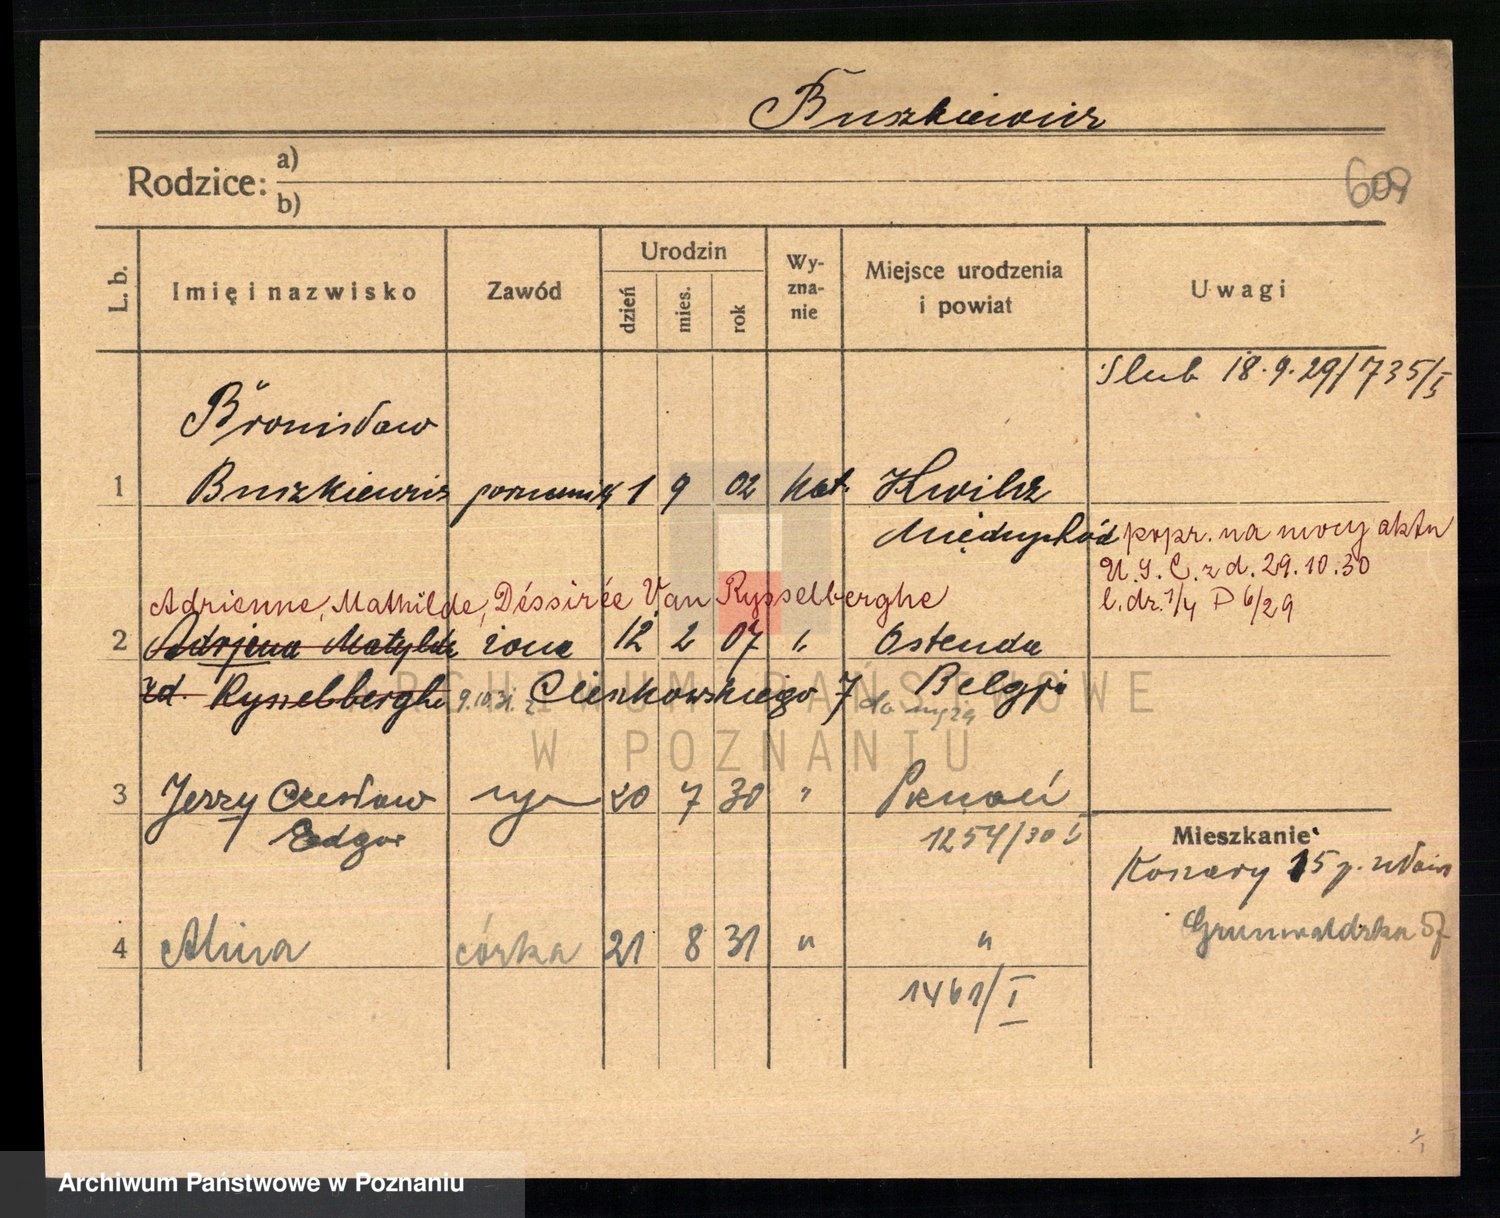 Buszkiewicz
Rodzice: a)
b)
609
L. b.
Imię i nazwisko
Zawód
Urodzin
dzień
mies.
rok
Wy-
zna-
nie
Miejsce urodzenia
i powiat
Uwagi
Slub 18.9.29/735/I
Bronisław
1 Buszkiewicz porucznik 1 9 02 kat. Kwilcz
Międzychód
popr. na mocy aktu
U. S. C. z d. 29.10.30
l. dz. 1/4 D 6/29
Adrienne, Mathilde, Déssirée Van Rysselberghe
2 Adrjena Matylda żona 12 2 07 " Ostenda
zd. Rysselberghe 9.10.31. z Cieszkowskiego 7 do męża Belgja
3 Jerzy Czesław syn 20 7 30 " Poznań
Edgar
1254/30 I
Mieszkanie
Koszary 15 p. ułanów
4 Alina córka 21 8 31 " "
Grunwaldzka
1461/I
ARCHIWUM PAŃSTWOWE
W POZNANIU
Archiwum Państwowe w Poznaniu